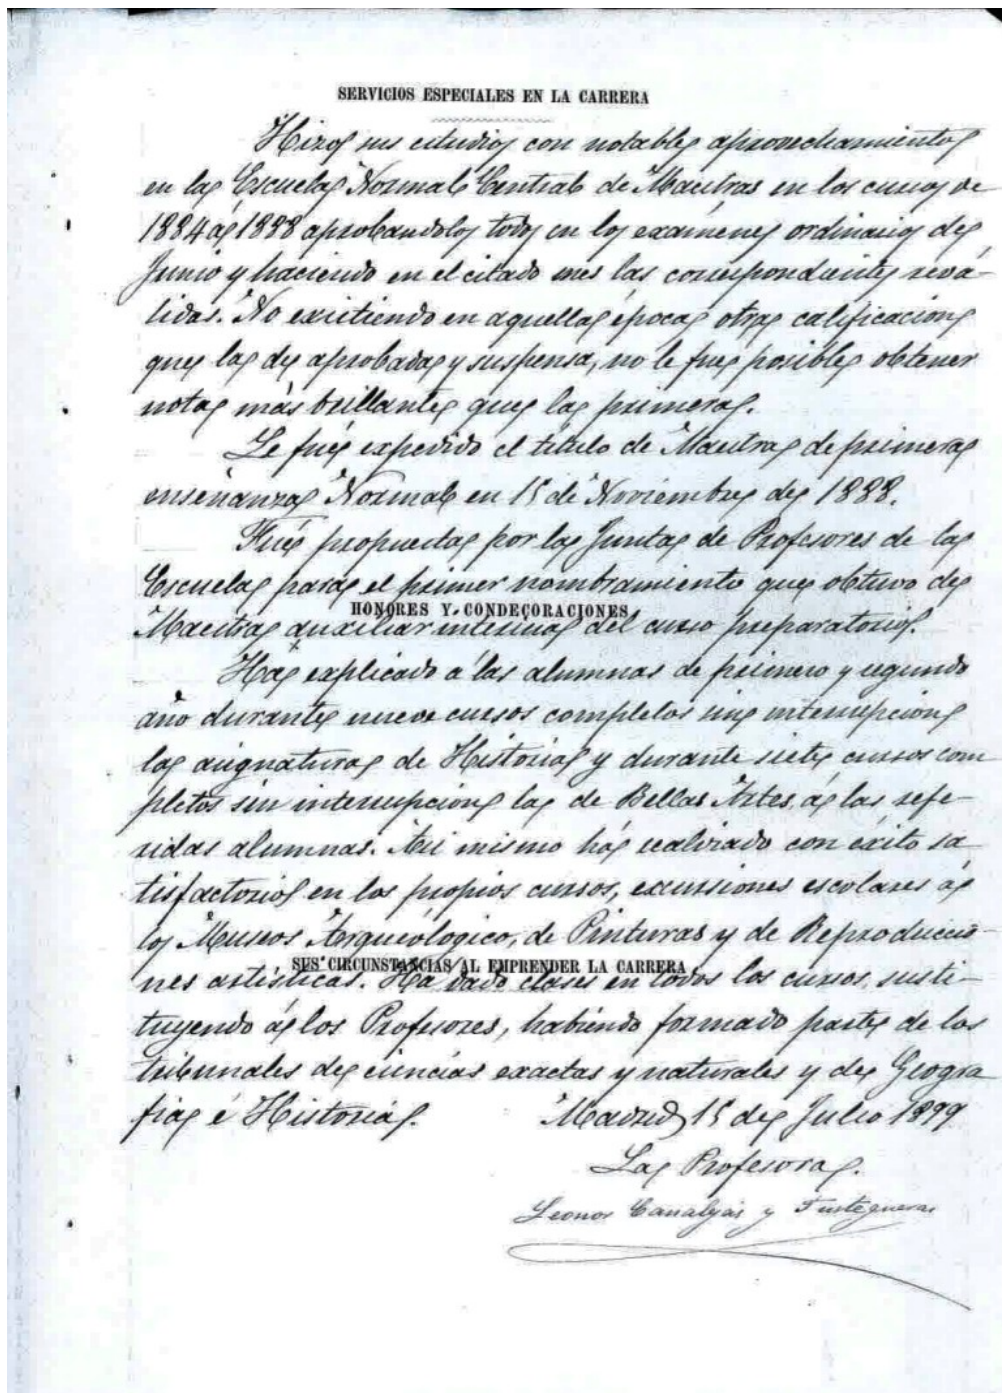 SERVICIOS ESPECIALES EN LA CARRERA
Hizo sus estudios con notable aprovechamiento
en la Escuela Normal Central de Maestras en los cursos de
1884 á 1888 aprobandolos todos en los exámenes ordinarios de
Junio y haciendo en el citado mes las correspondientes revá-
lidas. No existiendo en aquella época otra calificacion
que la de aprobada y suspensa, no le fue posible obtener
nota más brillante que la primera.
Le fué expedido el título de Maestra de primera
enseñanza Normal en 15 de Noviembre de 1888.
Fué propuesta por la Junta de Profesores de la
Escuela para el primer nombramiento que obtuvo de
HONORES Y CONDECORACIONES
Maestra auxiliar interina del curso preparatorio.
Ha explicado á las alumnas de primero y segundo
año durante nueve cursos completos sin interrupcion
la asignatura de Historia y durante siete cursos com
pletos sin interrupcion la de Bellas Artes, á las refe-
ridas alumnas. Asi mismo ha realizado con éxito sa
tisfactorio en los propios cursos, excursiones escolares á
los Museos Arqueológico, de Pinturas y de Reproduccio-
SUS CIRCUNSTANCIAS AL EMPRENDER LA CARRERA
nes artísticas. Ha dado clases en todos los cursos, susti-
tuyendo á los Profesores, habiendo formado parte de los
tribunales de ciencias exactas y naturales y de Geogra
fia é Historia.
Madrid 15 de Julio 1899
La Profesora.
Leonor Canalejas y Fustegueras